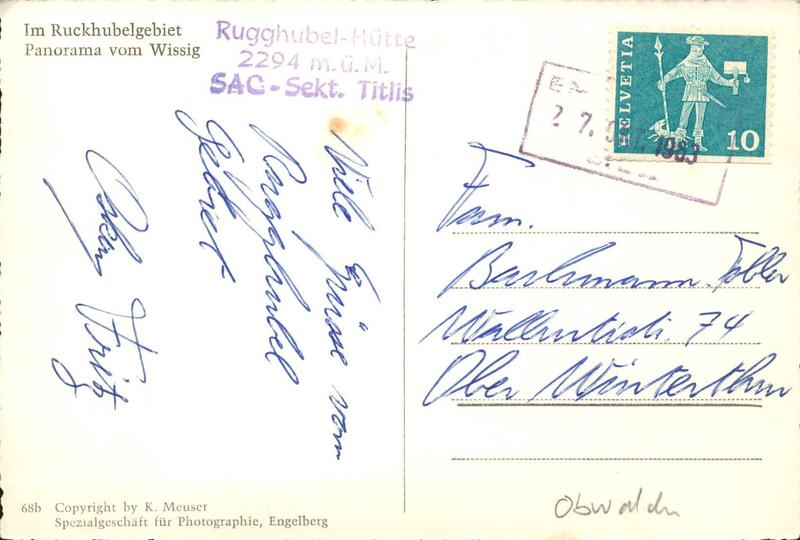 Im Ruckhubelgebiet
Panorama vom Wissig
Rugghubel-Hütte
2294 m.ü.M.
SAC-Sekt. Titlis
HELVETIA
10
27. 1963
Viele Grüsse vom
Rugghubel
Gebiet
Fritz
Fam.
Bachmann-Tobler
74
Ober Winterthur
68b Copyright by K. Meuser
Spezialgeschäft für Photographie, Engelberg
Obwalden